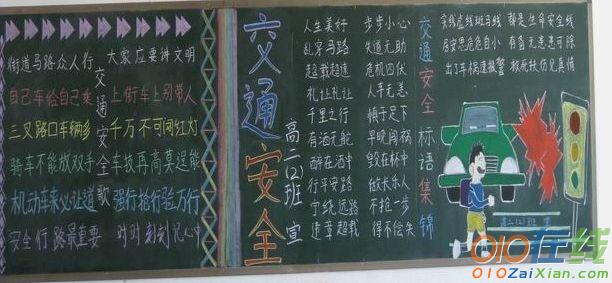 街道马路众人行 大家应要讲文明
自己车给自己乘 上街车上别带人
三叉路口车辆多 千万不可闯红灯
骑车不能放双手 车技再高莫逞能
机动车来必让道 强行抢行
安全行路最重要 时时刻刻记心中
交通安全歌
交通安全
高二(2)班 宣
人生美好 步步小心
乱穿马路 失道无助
超载超速 危机四伏
礼让礼让 人手无恙
千里之行 慎于足下
有酒无舵 早晚闯祸
醉在酒中 毁在杯中
行平安路 做长乐人
宁绕远路 不抢一步
违章超载 得不偿失
交通安全标语集锦
实线虚线斑马线 都是生命安全线
居安思危危自小 有备无患患可除
出了车祸速报警 救死扶伤见真情
高二(2)班 宣
010在线
010ZaiXian.com